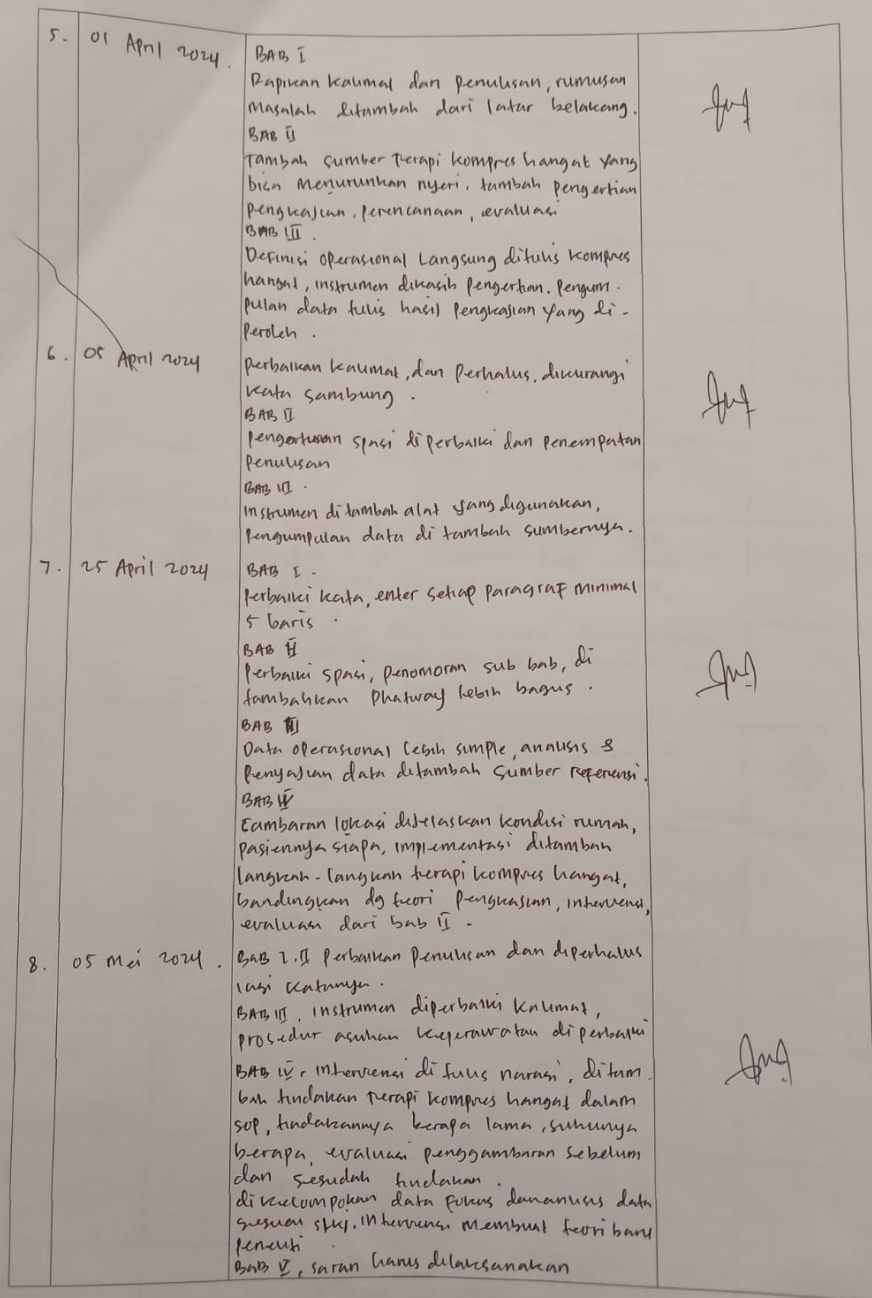 5. 01 April 2024. BAB I
Rapikan kalimat dan penulisan, rumusan
masalah ditambah dari latar belakang.
BAB II
Tambah sumber terapi kompres hangat yang
bisa menurunkan nyeri, tambah pengertian
pengkajian, perencanaan, evaluasi
BAB III.
Definisi operasional langsung ditulis kompres
hangat, instrumen dikasih pengertian. Pengum-
pulan data tulis hasil pengkajian yang di-
peroleh.
6. 05 April 2024 perbaikan kalimat, dan perhalus, dikurangi
kata sambung.
BAB II
pengertian spasi diperbaiki dan penempatan
penulisan
BAB III.
instrumen ditambah alat yang digunakan,
pengumpulan data di tambah sumbernya.
7. 25 April 2024 BAB I.
Perbaiki kata, enter setiap paragraf minimal
5 baris.
BAB II
Perbaiki spasi, penomoran sub bab, di
tambahkan Phatway lebih bagus.
BAB III
Data operasional lebih simple, analisis &
penyajian data ditambah sumber referensi.
BAB IV
Gambaran lokasi dijelaskan kondisi rumah,
pasiennya siapa, implementasi ditambah
langkah-langkah terapi kompres hangat,
bandingkan dg teori pengkajian, intervensi,
evaluasi dari bab II.
8. 05 Mei 2024. BAB I.II perbaikan penulisan dan diperhalus
lagi katanya.
BAB III, instrumen diperbaiki kalimat,
prosedur asuhan keperawatan diperbaiki
BAB IV, intervensi di tulis narasi, ditam
bah tindakan terapi kompres hangat dalam
sop, tindakannya berapa lama, suhunya
berapa, evaluasi penggambaran sebelum
dan sesudah tindakan.
dikelompokan data fokus dan analisis data
sesuai slki. intervensi membuat teori baru
peneliti.
BAB V, saran harus dilaksanakan